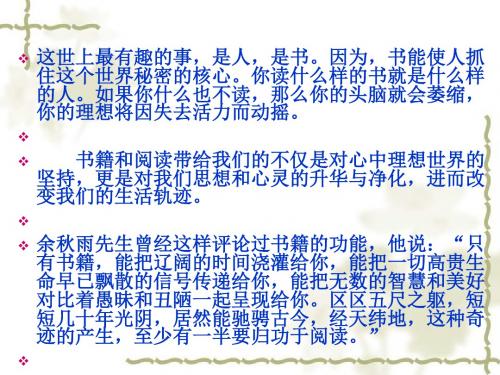 这世上最有趣的事，是人，是书。因为，书能使人抓
住这个世界秘密的核心。你读什么样的书就是什么样
的人。如果你什么也不读，那么你的头脑就会萎缩，
你的理想将因失去活力而动摇。
书籍和阅读带给我们的不仅是对心中理想世界的
坚持，更是对我们思想和心灵的升华与净化，进而改
变我们的生活轨迹。
余秋雨先生曾经这样评论过书籍的功能，他说：“只
有书籍，能把辽阔的时间浇灌给你，能把一切高贵生
命早已飘散的信号传递给你，能把无数的智慧和美好
对比着愚昧和丑陋一起呈现给你。区区五尺之躯，短
短几十年光阴，居然能驰骋古今，经天纬地，这种奇
迹的产生，至少有一半要归功于阅读。”